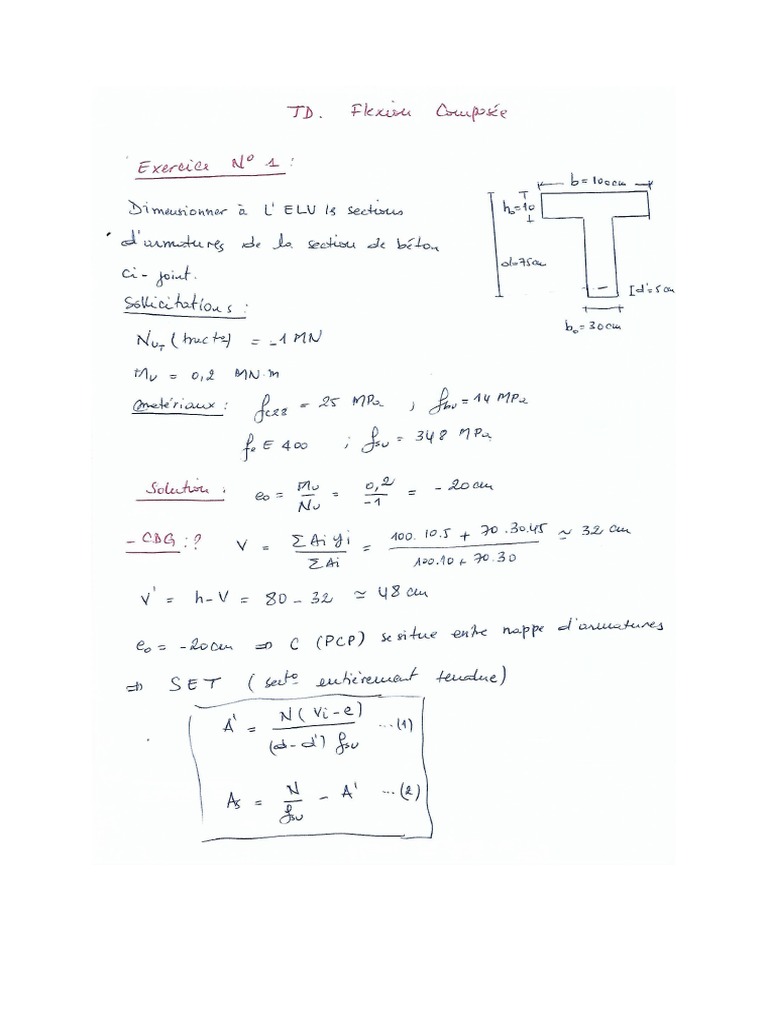 TD. Flexion Composée
Exercice N° 1 :
Dimensionner à L'ELU ls sections
d'armatures de la section de béton
ci-joint.
b = 100cm
h₀=10
d=75cm
d'=5cm
b₀=30cm
Sollicitations :
N_UT (tracto) = -1 MN
M_U = 0,2 MN.m
matériaux : f_c28 = 25 MPa ; f_bu = 14 MPa
f_e E 400 ; f_su = 348 MPa
Solution : e₀ = M_U / N_U = 0,2 / -1 = - 20cm
- CDG : ? V = Σ Ai yi / Σ Ai = 100.10.5 + 70.30.45 / 100.10 + 70.30 ≃ 32 cm
V' = h - V = 80 - 32 ≃ 48 cm
e₀ = -20cm ⇒ C (PCP) se situe entre nappe d'armatures
⇒ SET (secto entièrement tendue)
A' = N ( Vi - e ) / (d - d') f_su ...(1)
As = N / f_su - A' ...(2)